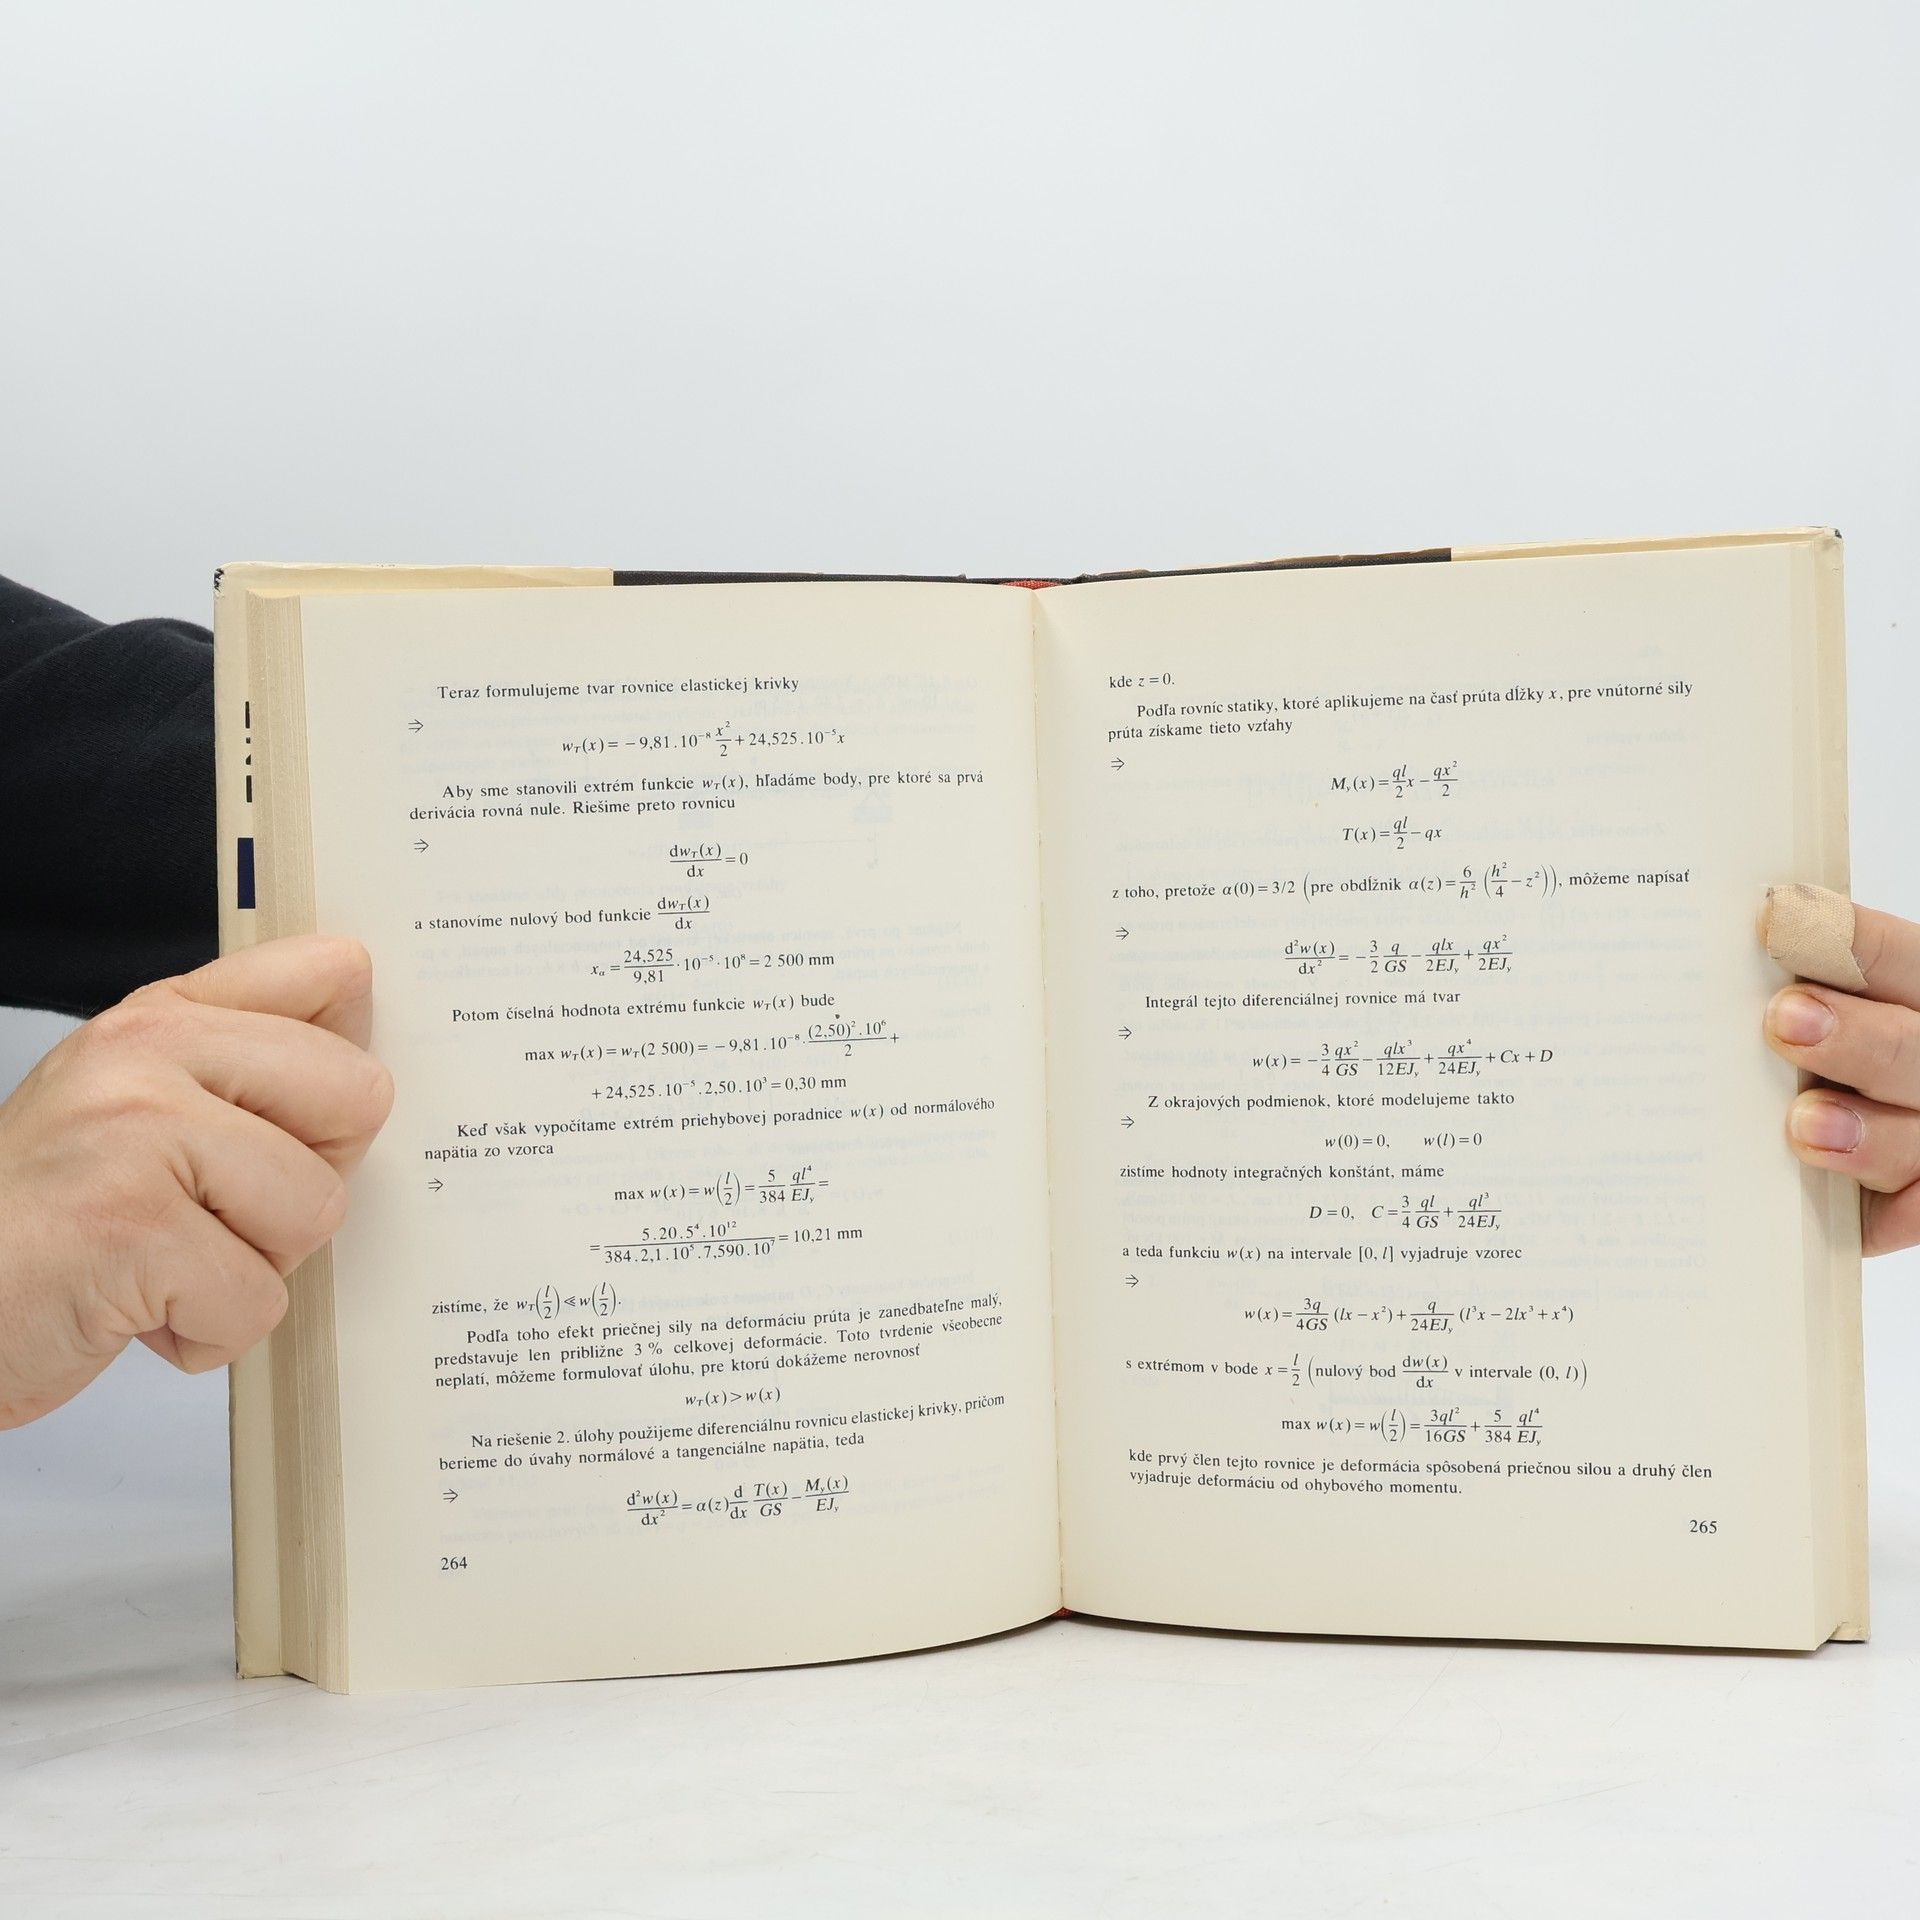 Teraz formulujeme tvar rovnice elastickej krivky
⇒
w_T(x) = −9,81 . 10⁻⁸ x²/2 + 24,525 . 10⁻⁵x
Aby sme stanovili extrém funkcie w_T(x), hľadáme body, pre ktoré sa prvá
derivácia rovná nule. Riešime preto rovnicu
⇒
dw_T(x)/dx = 0
a stanovíme nulový bod funkcie dw_T(x)/dx
x_α = 24,525/9,81 · 10⁻⁵ · 10⁸ = 2 500 mm
Potom číselná hodnota extrému funkcie w_T(x) bude
max w_T(x) = w_T(2 500) = −9,81 . 10⁻⁸ . (2,50)² . 10⁶/2 +
+ 24,525 . 10⁻⁵ . 2,50 . 10³ = 0,30 mm
Keď však vypočítame extrém priehybovej poradnice w(x) od normálového
napätia zo vzorca
⇒
max w(x) = w(l/2) = 5/384 ql⁴/EJ_y =
= 5 . 20 . 5⁴ . 10¹²/384 . 2,1 . 10⁵ . 7,590 . 10⁷ = 10,21 mm
zistíme, že w_T(l/2) ≪ w(l/2).
Podľa toho efekt priečnej sily na deformáciu prúta je zanedbateľne malý,
predstavuje len približne 3 % celkovej deformácie. Toto tvrdenie všeobecne
neplatí, môžeme formulovať úlohu, pre ktorú dokážeme nerovnosť
w_T(x) > w(x)
Na riešenie 2. úlohy použijeme diferenciálnu rovnicu elastickej krivky, pričom
berieme do úvahy normálové a tangenciálne napätia, teda
⇒
d²w(x)/dx² = α(z) d/dx T(x)/GS − M_y(x)/EJ_y
264
kde z = 0.
Podľa rovníc statiky, ktoré aplikujeme na časť prúta dĺžky x, pre vnútorné sily
prúta získame tieto vzťahy
⇒
M_y(x) = ql/2 x − qx²/2
T(x) = ql/2 − qx
z toho, pretože α(0) = 3/2 (pre obdĺžnik α(z) = 6/h² (h²/4 − z²)), môžeme napísať
⇒
d²w(x)/dx² = −3/2 q/GS − qlx/2EJ_y + qx²/2EJ_y
Integrál tejto diferenciálnej rovnice má tvar
⇒
w(x) = −3/4 qx²/GS − qlx³/12EJ_y + qx⁴/24EJ_y + Cx + D
Z okrajových podmienok, ktoré modelujeme takto
⇒
w(0) = 0, w(l) = 0
zistíme hodnoty integračných konštánt, máme
D = 0, C = 3/4 ql/GS + ql³/24EJ_y
a teda funkciu w(x) na intervale [0, l] vyjadruje vzorec
⇒
w(x) = 3q/4GS (lx − x²) + q/24EJ_y (l³x − 2lx³ + x⁴)
s extrémom v bode x = l/2 (nulový bod dw(x)/dx v intervale (0, l))
max w(x) = w(l/2) = 3ql²/16GS + 5/384 ql⁴/EJ_y
kde prvý člen tejto rovnice je deformácia spôsobená priečnou silou a druhý člen
vyjadruje deformáciu od ohybového momentu.
265